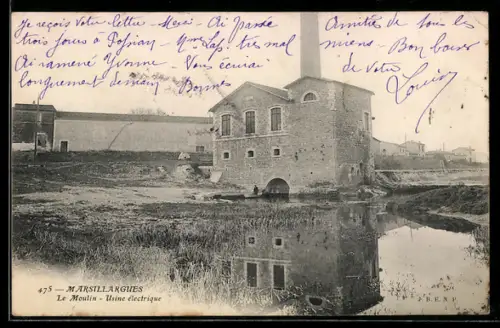 Je reçois Votre lettre - Merci - Ai passé
trois jours à Pésnay - Mme Lap. très mal
Ai ramené Yvonne Vous écrirai
longuement demain Bonnes
Amitiés de tous les
miens - Bon baiser
de votre
Louise
475 — MARSILLARGUES
Le Moulin - Usine électrique
J. B. E. N. P.